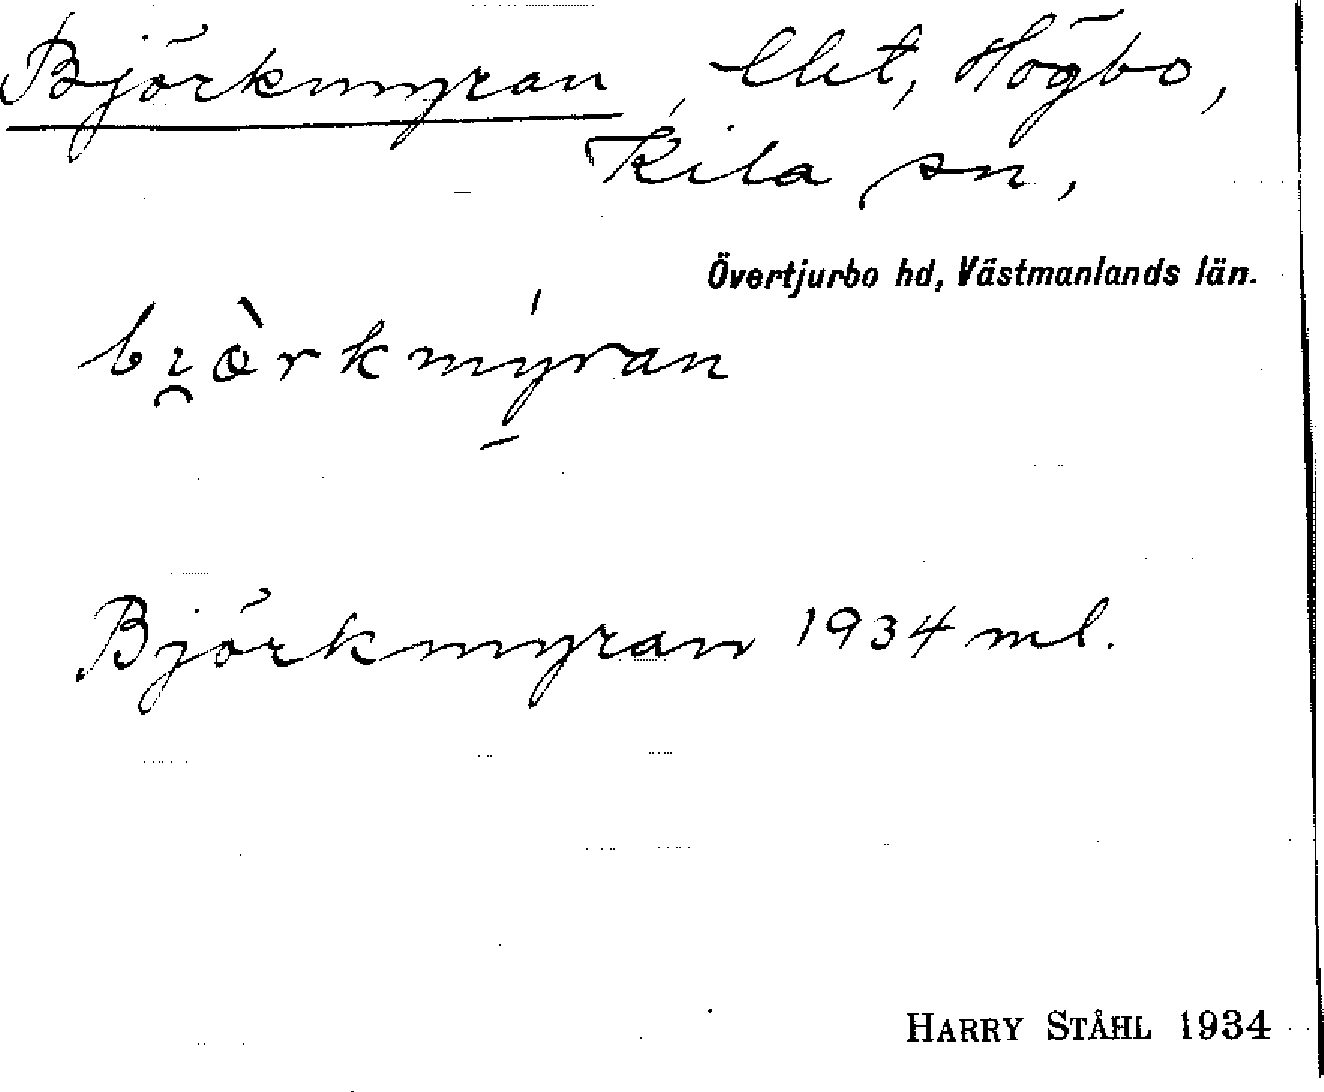 Björkmyran, lht, Högbo,
Kila sn,
Övertjurbo hd, Västmanlands län.
bi̯ö̀rkmýran
Björkmyran 1934 ml.
HARRY STÅHL 1934